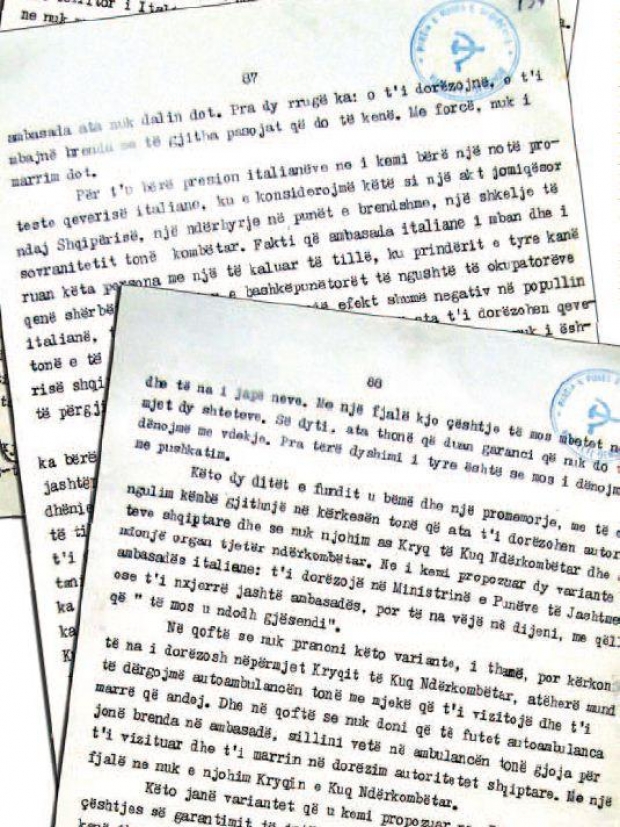 ne nuk
87
ambasada ata nuk dalin dot. Pra dy rrugë ka: o t'i dorëzojnë, o t'i
mbajnë brenda me të gjitha pasojat që do të kenë. Me forcë, nuk i
marrim dot.
Për t'u bërë presion italianëve ne i kemi bërë një notë pro-
teste qeverisë italiane, ku e konsiderojmë këtë si një akt jomiqësor
ndaj Shqipërisë, një ndërhyrje në punët e brendshme, një shkelje të
sovranitetit tonë kombëtar. Fakti që ambasada italiane i mban dhe i
ruan këta persona me një të kaluar të tillë, ku prindërit e tyre kanë
qenë shërbë e bashkëpunëtorët të ngushtë të okupatorëve
italianë, efekt shumë negativ në popullin
tonë e të ata t'i dorëzohen qeve-
risë shqi nuk i ësh-
të përgj
ka bërë
jashtë
dhënie
të
t'i
ka
88
dhe të na i japë neve. Me një fjalë kjo çështje të mos mbetet n
mjet dy shteteve. Së dyti, ata thonë që duan garanci që nuk do t
dënojmë me vdekje. Pra tërë dyshimi i tyre është se mos i dënojm
me pushkatim.
Këto dy ditët e fundit u bëmë dhe një promemorje, me të
ngulim këmbë gjithnjë në kërkesën tonë që ata t'i dorëzohen autor
teve shqiptare dhe se nuk njohim as Kryq të Kuq Ndërkombëtar dhe
ndonjë organ tjetër ndërkombëtar. Ne i kemi propozuar dy variante
ambasadës italiane: t'i dorëzojë në Ministrinë e Punëve të Jashtme
ose t'i nxjerrë jashtë ambasadës, por të na vëjë në dijeni, me qëll
që " të mos u ndodh gjësendi".
Në qoftë se nuk pranoni këto variante, i thamë, por kërkon
të na i dorëzosh nëpërmjet Kryqit të Kuq Ndërkombëtar, atëherë mund
të dërgojmë autoambulancën tonë me mjekë që t'i vizitojë dhe t'i
marrë që andej. Dhe në qoftë se nuk doni që të futet autoambulanca
jonë brenda në ambasadë, sillini vetë në ambulancën tonë gjoja për
t'i vizituar dhe t'i marrin në dorëzim autoritetet shqiptare. Me një
fjalë ne nuk e njohim Kryqin e Kuq Ndërkombëtar.
Këto janë variantet që u kemi propozuar
çështjes së garantimit të